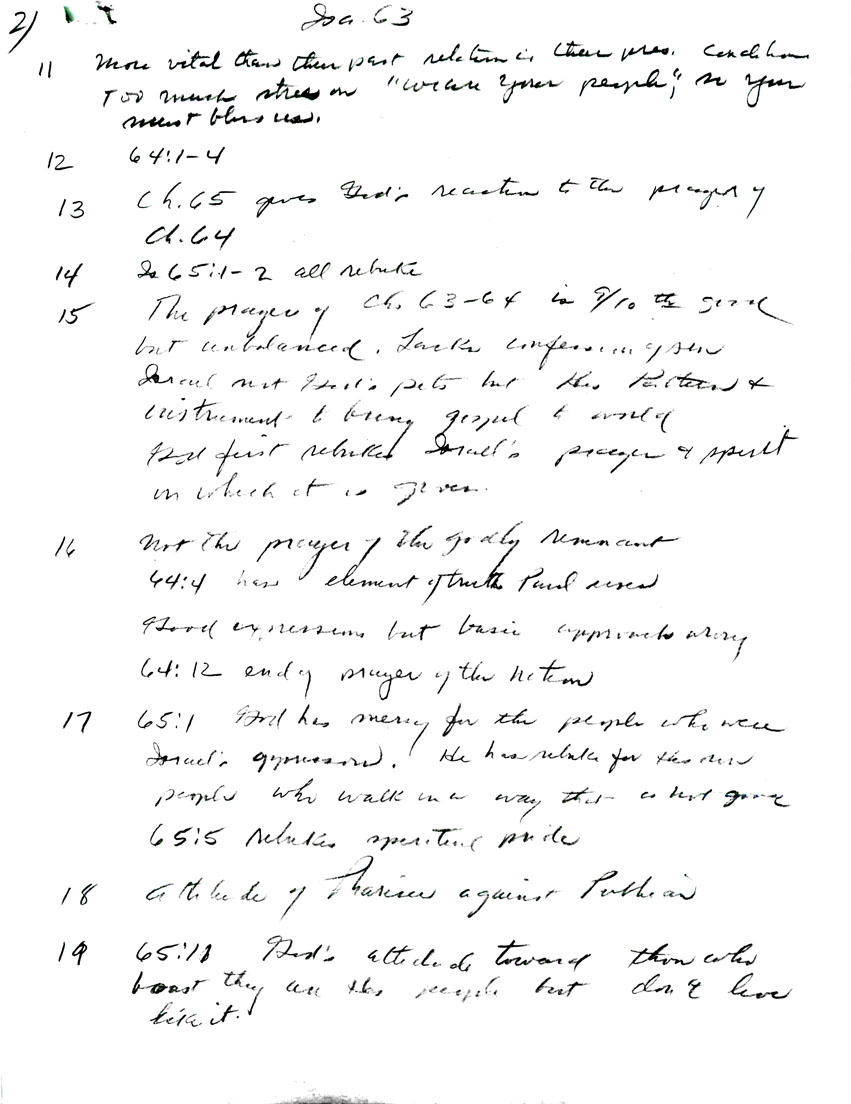 2)
Isa. 63
11 More vital than their past relation is their pres. condition
Too much stress on "we are your people," so you
must bless us.
12 64:1-4
13 Ch. 65 gives God's reaction to the prayer of
Ch. 64
14 Is 65:1-2 all rebuke
15 The prayer of Ch. 63-64 is 9/10 the good
but unbalanced. Lacks confession of sin
Israel not God's pets but His &
instrument to bring gospel to world
God first rebukes Israel's prayer & spirit
in which it is given.
16 Not the prayer of the godly remnant
64:4 has element of truth Paul used
Good expressions but basic approach wrong
64:12 end of prayer of the nation
17 65:1 God has mercy for the people who were
Israel's oppressors. He has rebuke for His own
people who walk in a way that is not good
65:5 rebukes spiritual pride
18 Attitude of Pharisee against Publican
19 65:11 God's attitude toward those who
boast they are His people but don't live
like it.